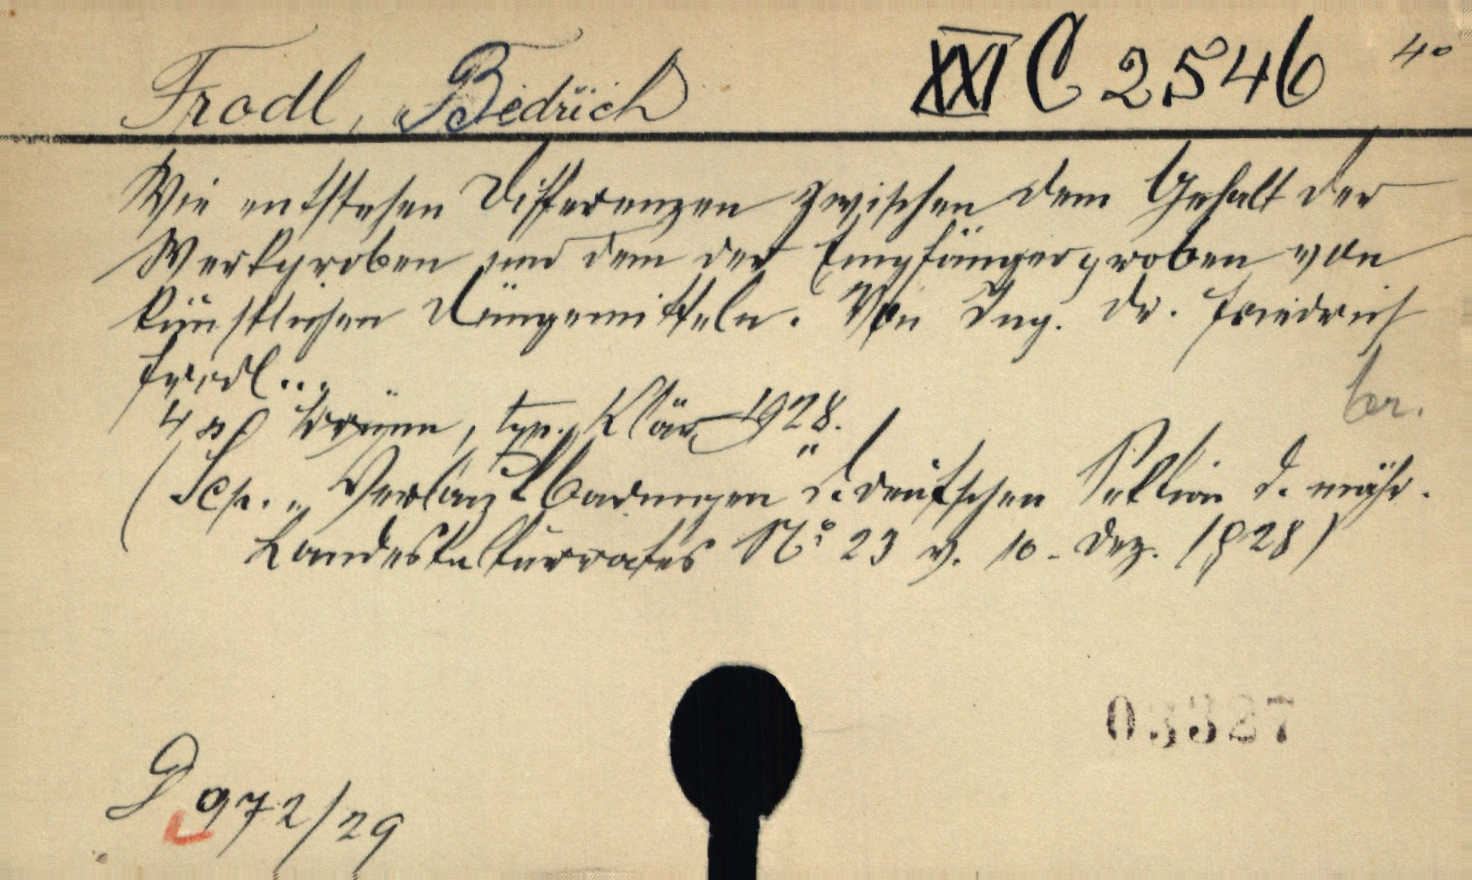 Frodl, Bedřich XXI C 2546 4°
Wie entstehen Differenzen zwischen dem Gehalt der
Werksproben und dem der Empfängerproben von
künstlichen Düngemitteln. Von Ing. Dr. Friedrich
Frodl...
br.
4 s. Brünn, typ. Klár 1928.
(Sep. „Verlautbarungen" d. deutschen Sektion d. mähr.
Landeskulturrates N° 23 v. 10. Dez. 1928)
D 972/29